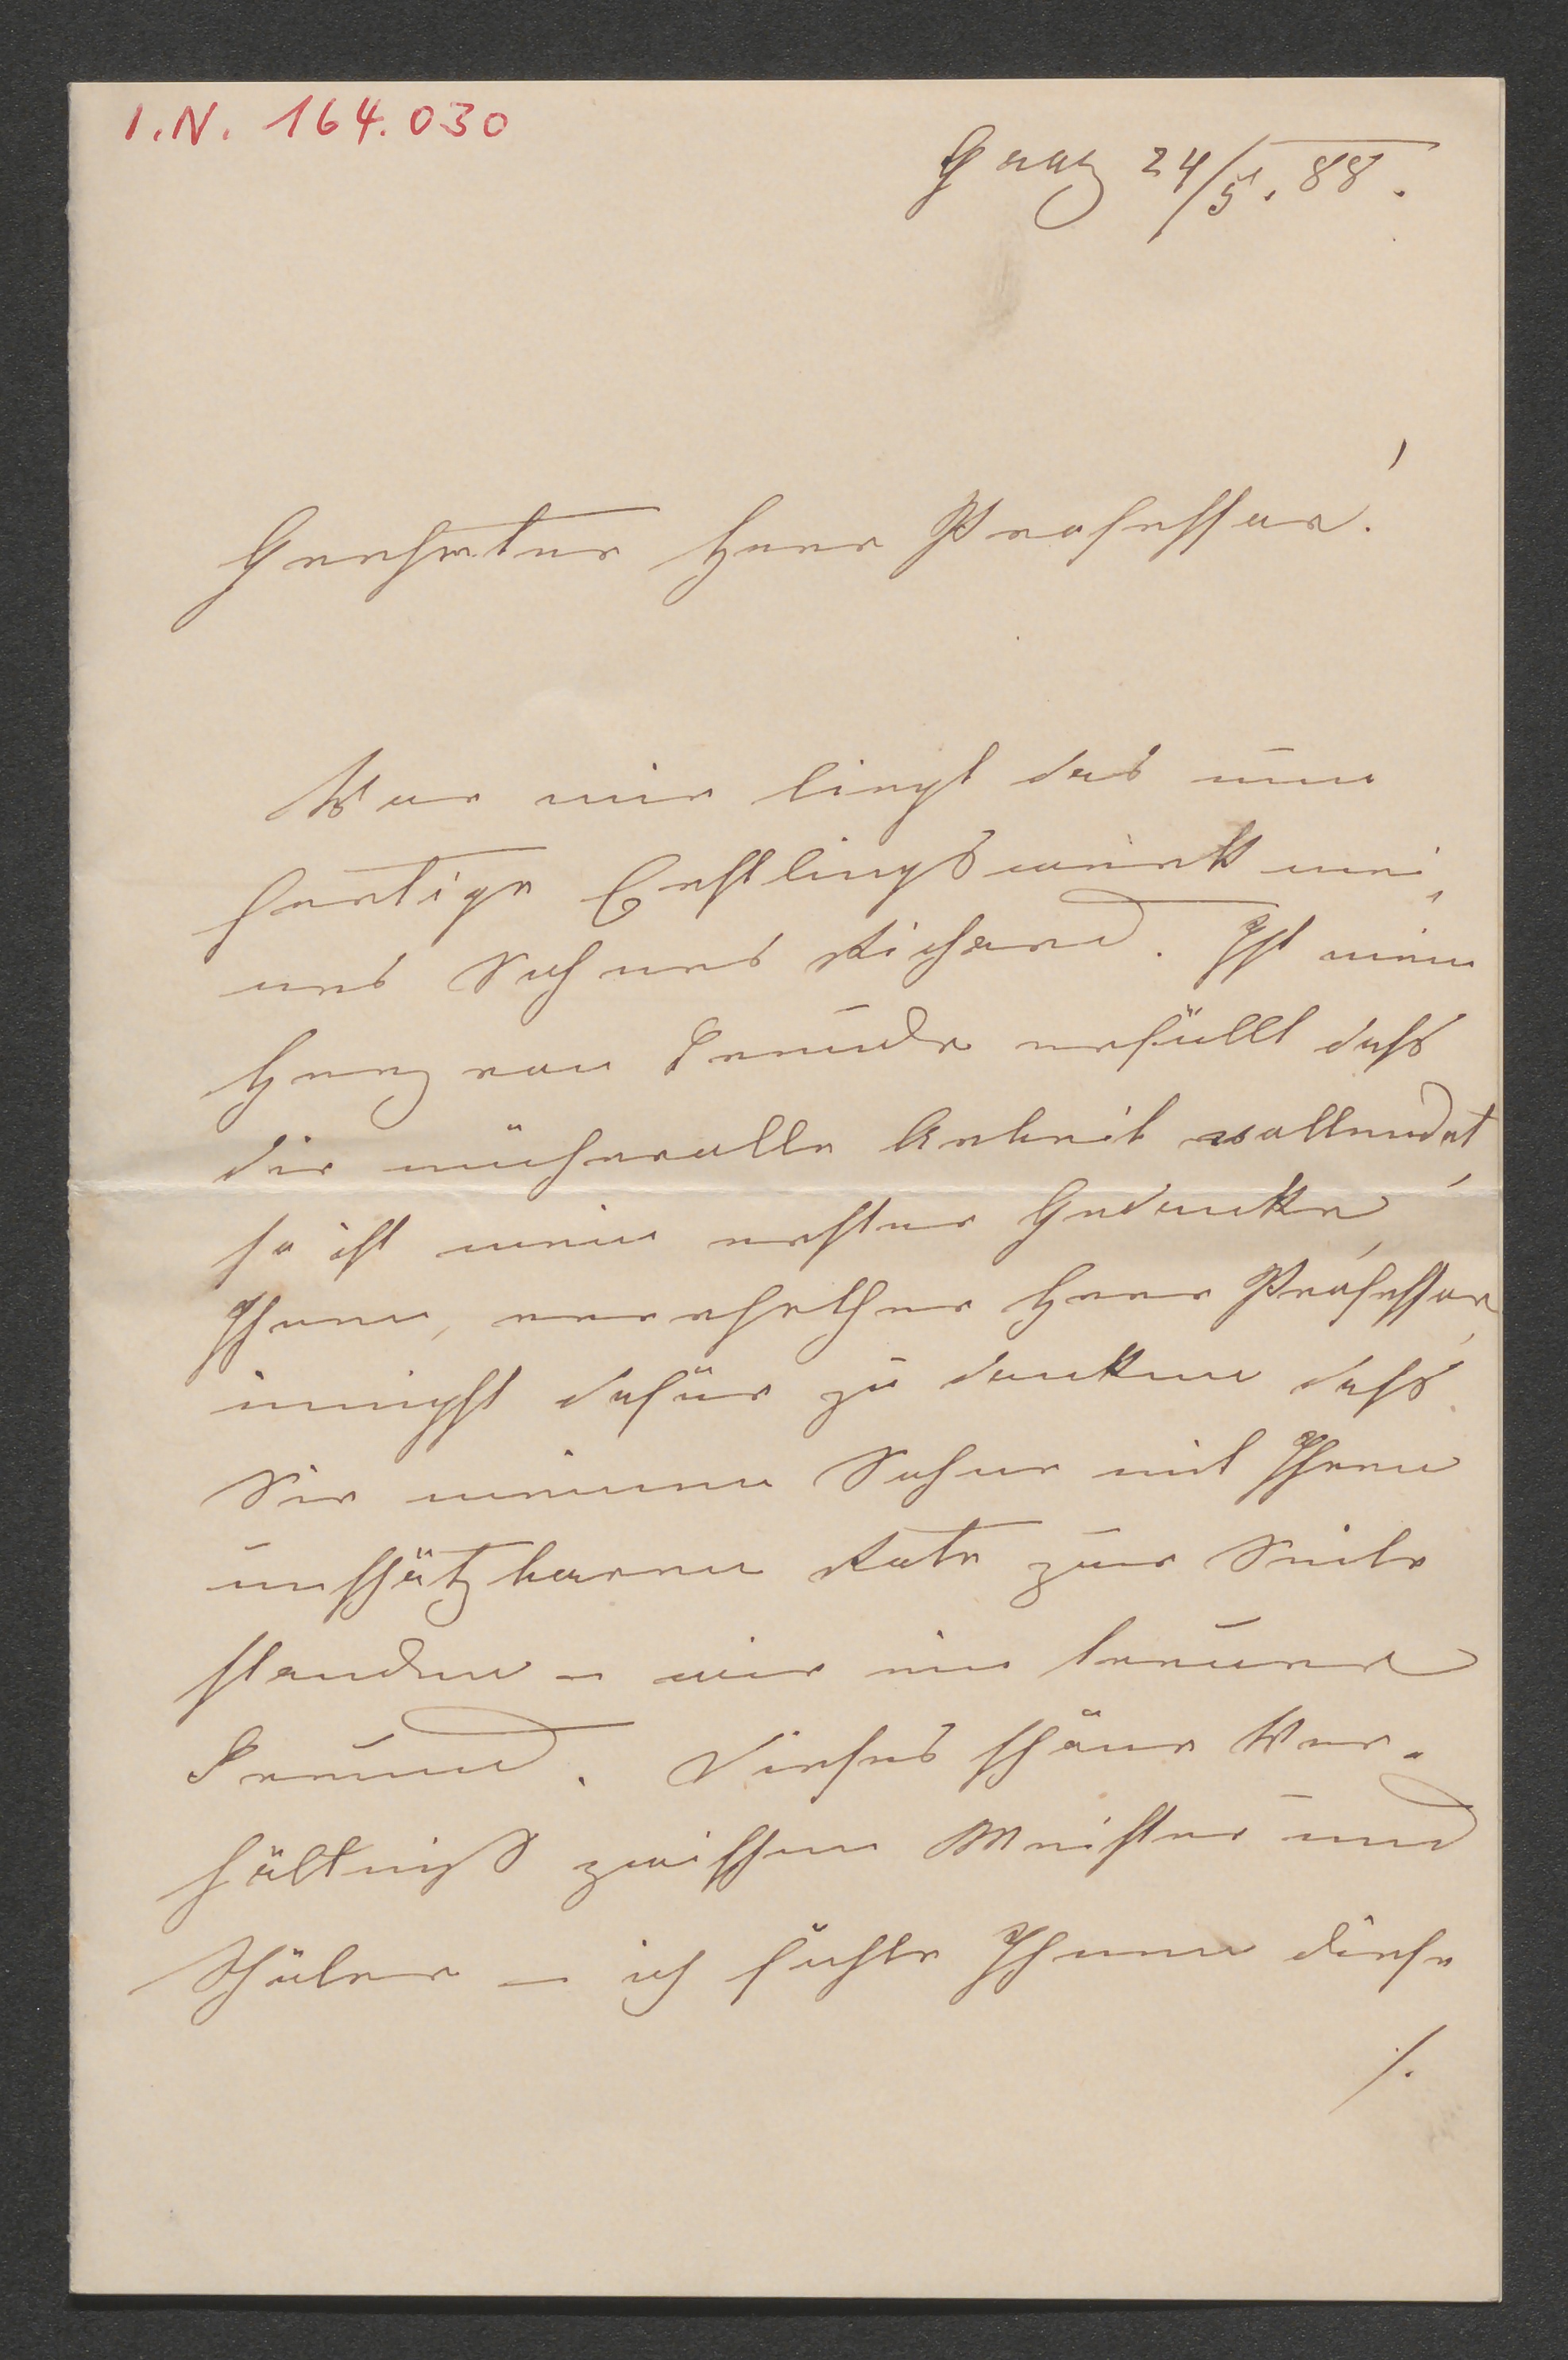 I.N. 164.030
Graz 24/5. 88.
Geehrter Herr Professor!
Vor mir liegt das nun
fertige Erstlingswerk mei-
nes Sohnes Richard. Ist mein
Herz von Freude erfüllt dass
die mühevolle Arbeit vollendet,
so ist mein erster Gedanke,
Ihnen, verehrther Herr Professor,
innigst dafür zu danken dass
Sie meinem Sohne mit Ihrem
unschätzbaren Rate zur Seite
standen - wie ein treuer
Freund. Dieses schöne Ver-
hältniss zwischen Meister und
Schüler — ich fühle Ihnen diese
./.